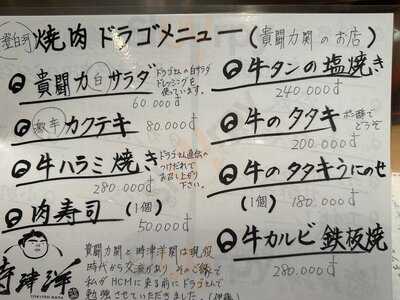 登白河 焼肉 ドラゴメニュー (貴闘力関のお店)
貴闘力白サラダ
ドラゴさんの白サラダ
ドレッシングを
使っています。
60.000đ
激辛 カクテキ 80.000đ
牛ハラミ焼き
ドラゴさん直伝の
つけだれで
お召し上がり
下さい。
280.000đ
肉寿司 (1個)
50.000đ
牛タンの塩焼き
240.000đ
牛のタタキ
ポン酢で
どうぞ
200.000đ
牛のタタキうにのせ
(1個) 180.000đ
牛カルビ鉄板焼
280.000đ
時津洋
貴闘力関と時津洋関は現役
時代から交流があり、そのご縁で
私がHCMに来る前にドラゴさんで
勉強させていただきました。(伊藤)